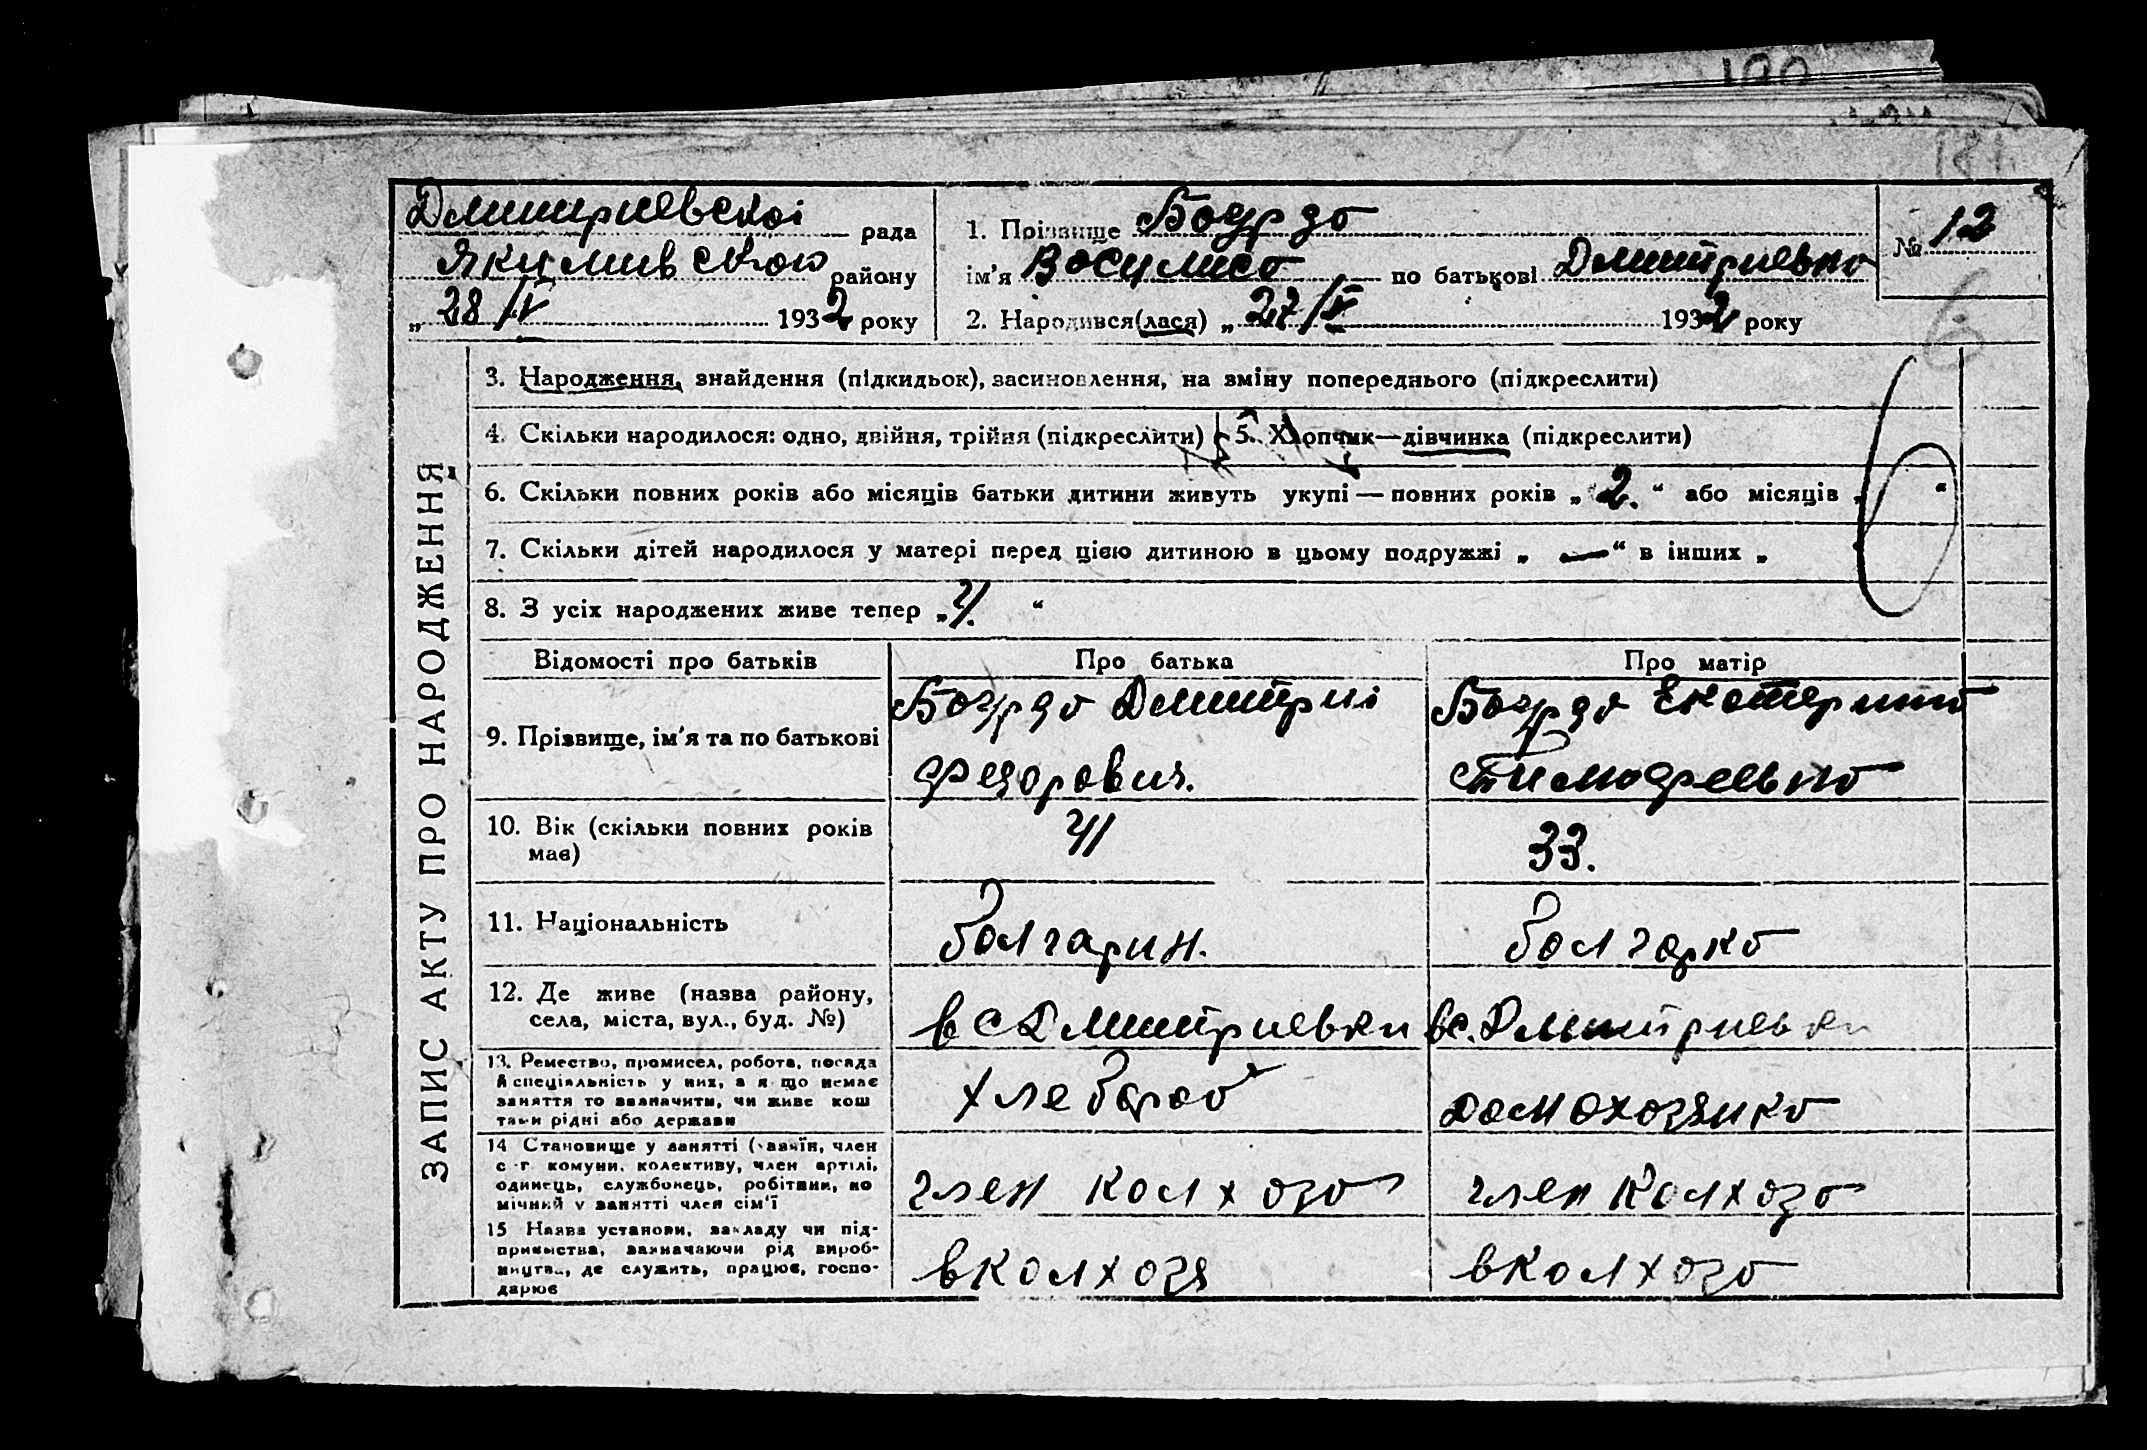 Дмитриевскоі рада
Якимивскою району
„28/IV 1932 року
1. Прізвище Баурда
ім'я Васимиса по батькові Дмитриевна
2. Народився(лася) „27/IV 1932 року
№ 12
6
3. Народження, знайдення (підкидьок), засиновлення, на зміну попереднього (підкреслити)
4. Скільки народилося: одно, двійня, трійня (підкреслити) 5. Хлопчик—дівчинка (підкреслити)
6. Скільки повних років або місяців батьки дитини живуть укупі — повних років „2.“ або місяців „ “
7. Скільки дітей народилося у матері перед цією дитиною в цьому подружжі „ — “ в інших „
8. З усіх народжених живе тепер „4.“
ЗАПИС АКТУ ПРО НАРОДЖЕННЯ
Відомості про батьків Про батька Про матір
9. Прізвище, ім'я та по батькові
Баурда Дмитриі
Федорович.
Баурда Екатерина
Тимофеевна
10. Вік (скільки повних років має) 41 33.
11. Національність болгарин. болгарка
12. Де живе (назва району,
села, міста, вул., буд. №)
в с Дмитриевки в с. Дмитриевки
13. Ремество, промисел, робота, посада
й спеціяльність у них, а я що немає
заняття то зазначити, чи живе кош
тами рідні або держави
хлебороб домохозяика
14 Становище у занятті (хазяїн, член
с-г комуни, колективу, член артілі,
одинець, службовець, робітник, по
мічний у занятті член сім'ї
член колхоза член колхоза
15 Назва установи, закладу чи під-
приємства, зазначаючи рід вироб-
ництва, де служить, працює, госпо-
дарює
в колхозя в колхоза